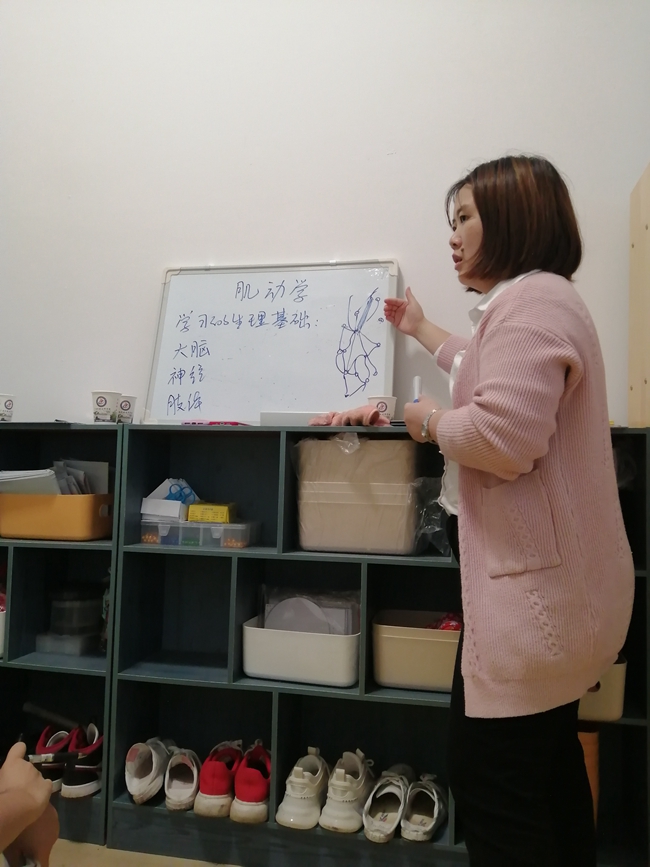 肌动学
学习的生理基础：
大脑
神经
肢体